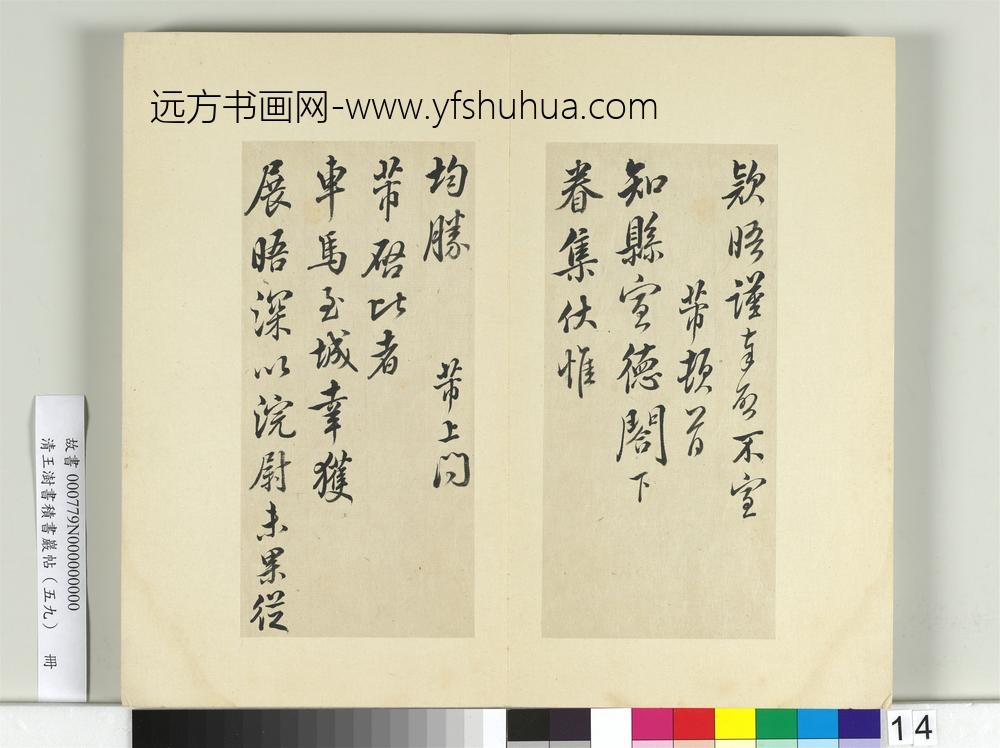 远方书画网-www.yfshuhua.com
款晤謹奉啓不宣
芾頓首
知縣宣德閤下
眷集伏惟
均勝
芾上問
芾啓比者
車馬至城幸獲
展晤深以浣尉未果從
故書000779N000000000
清王澍書積書巖帖（五九） 冊
14